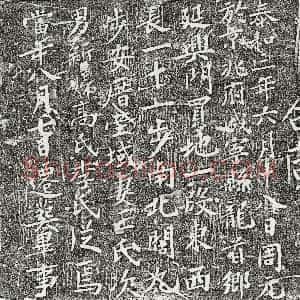 泰和二年六月十八日周
於京兆府咸寧縣龍首鄉
延興門買地一段東西
長一十一步南北闊九
步安厝塋域夏氏次
男婦高氏李氏從焉
當年八月七日遷葬畢事